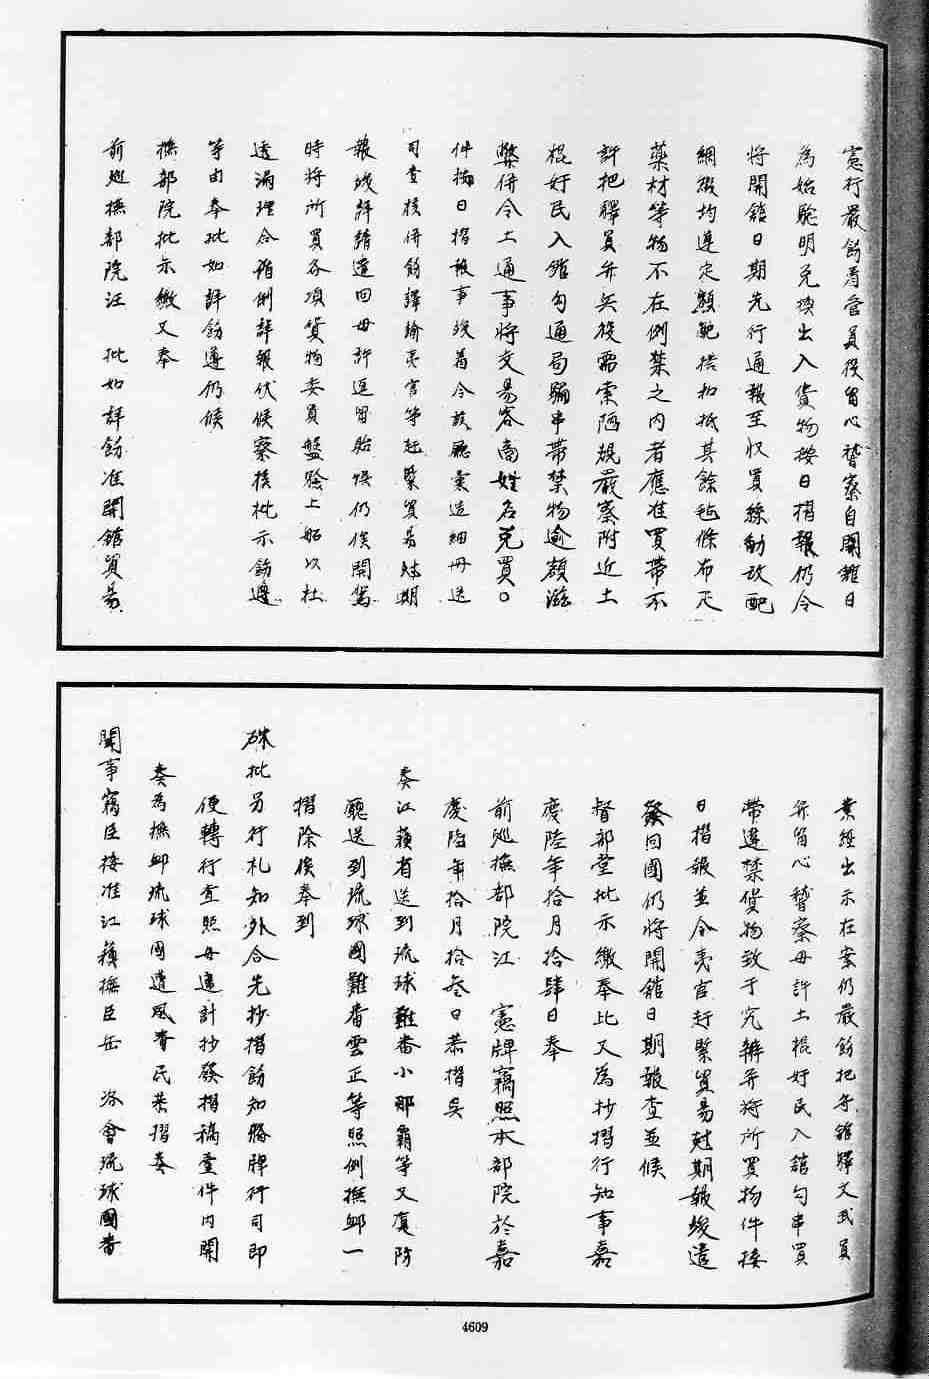 憲行嚴飭看管員役留心稽察自開館日
為始黎明免換出入貨物按日摺報仍令
將開館日期先行通報至収買絲觔改配
綢緞均遵定額範搭扣抵其餘毡條布疋
藥材等物不在例禁之内者應准買帶不
許把驛員弁兵役需索陋規嚴察附近土
棍奸民入館勾通局騙串帶禁物逾額滋
弊併令土通事將交易客商姓名克買。
件按日摺報事竣着令該廳彙造細冊送
司查核併飭譯諭夷官等赶緊貿易尅期
報竣詳請遣回毋許逗留貽悞仍俟開駕
時將所買各項貨物委員盤驗上船以杜
透漏理合循例詳報伏候察核批示飭遵
等由奉批如詳飭遵仍候
撫部院批示繳又奉
前廵撫部院汪　批如詳飭准開館貿易
業經出示在案仍嚴飭把守館驛文武員
弁留心稽察毋許土棍奸民入館勾串買
帶違禁貨物致于究辦并將所買物件按
日摺報並令夷官赶緊貿易尅期報竣遣
發回國仍將開館日期報查並候
督部堂批示繳奉此又為抄摺行知事嘉
慶陸年拾月拾肆日奉
前廵撫部院汪　憲牌竊照本部院於嘉
慶陸年拾月拾叁日恭摺具
奏江蘇省送到琉球難番小那霸等又厦防
廳送到琉球國難番雲正等照例撫卹一
摺除俟奉到
硃批另行札知外合先抄摺飭知備牌行司即
便轉行查照毋違計抄發摺稿壹件内開
奏為撫卹琉球國遭風番民恭摺奏
聞事竊臣接准江蘇撫臣岳　咨會琉球國番
4609